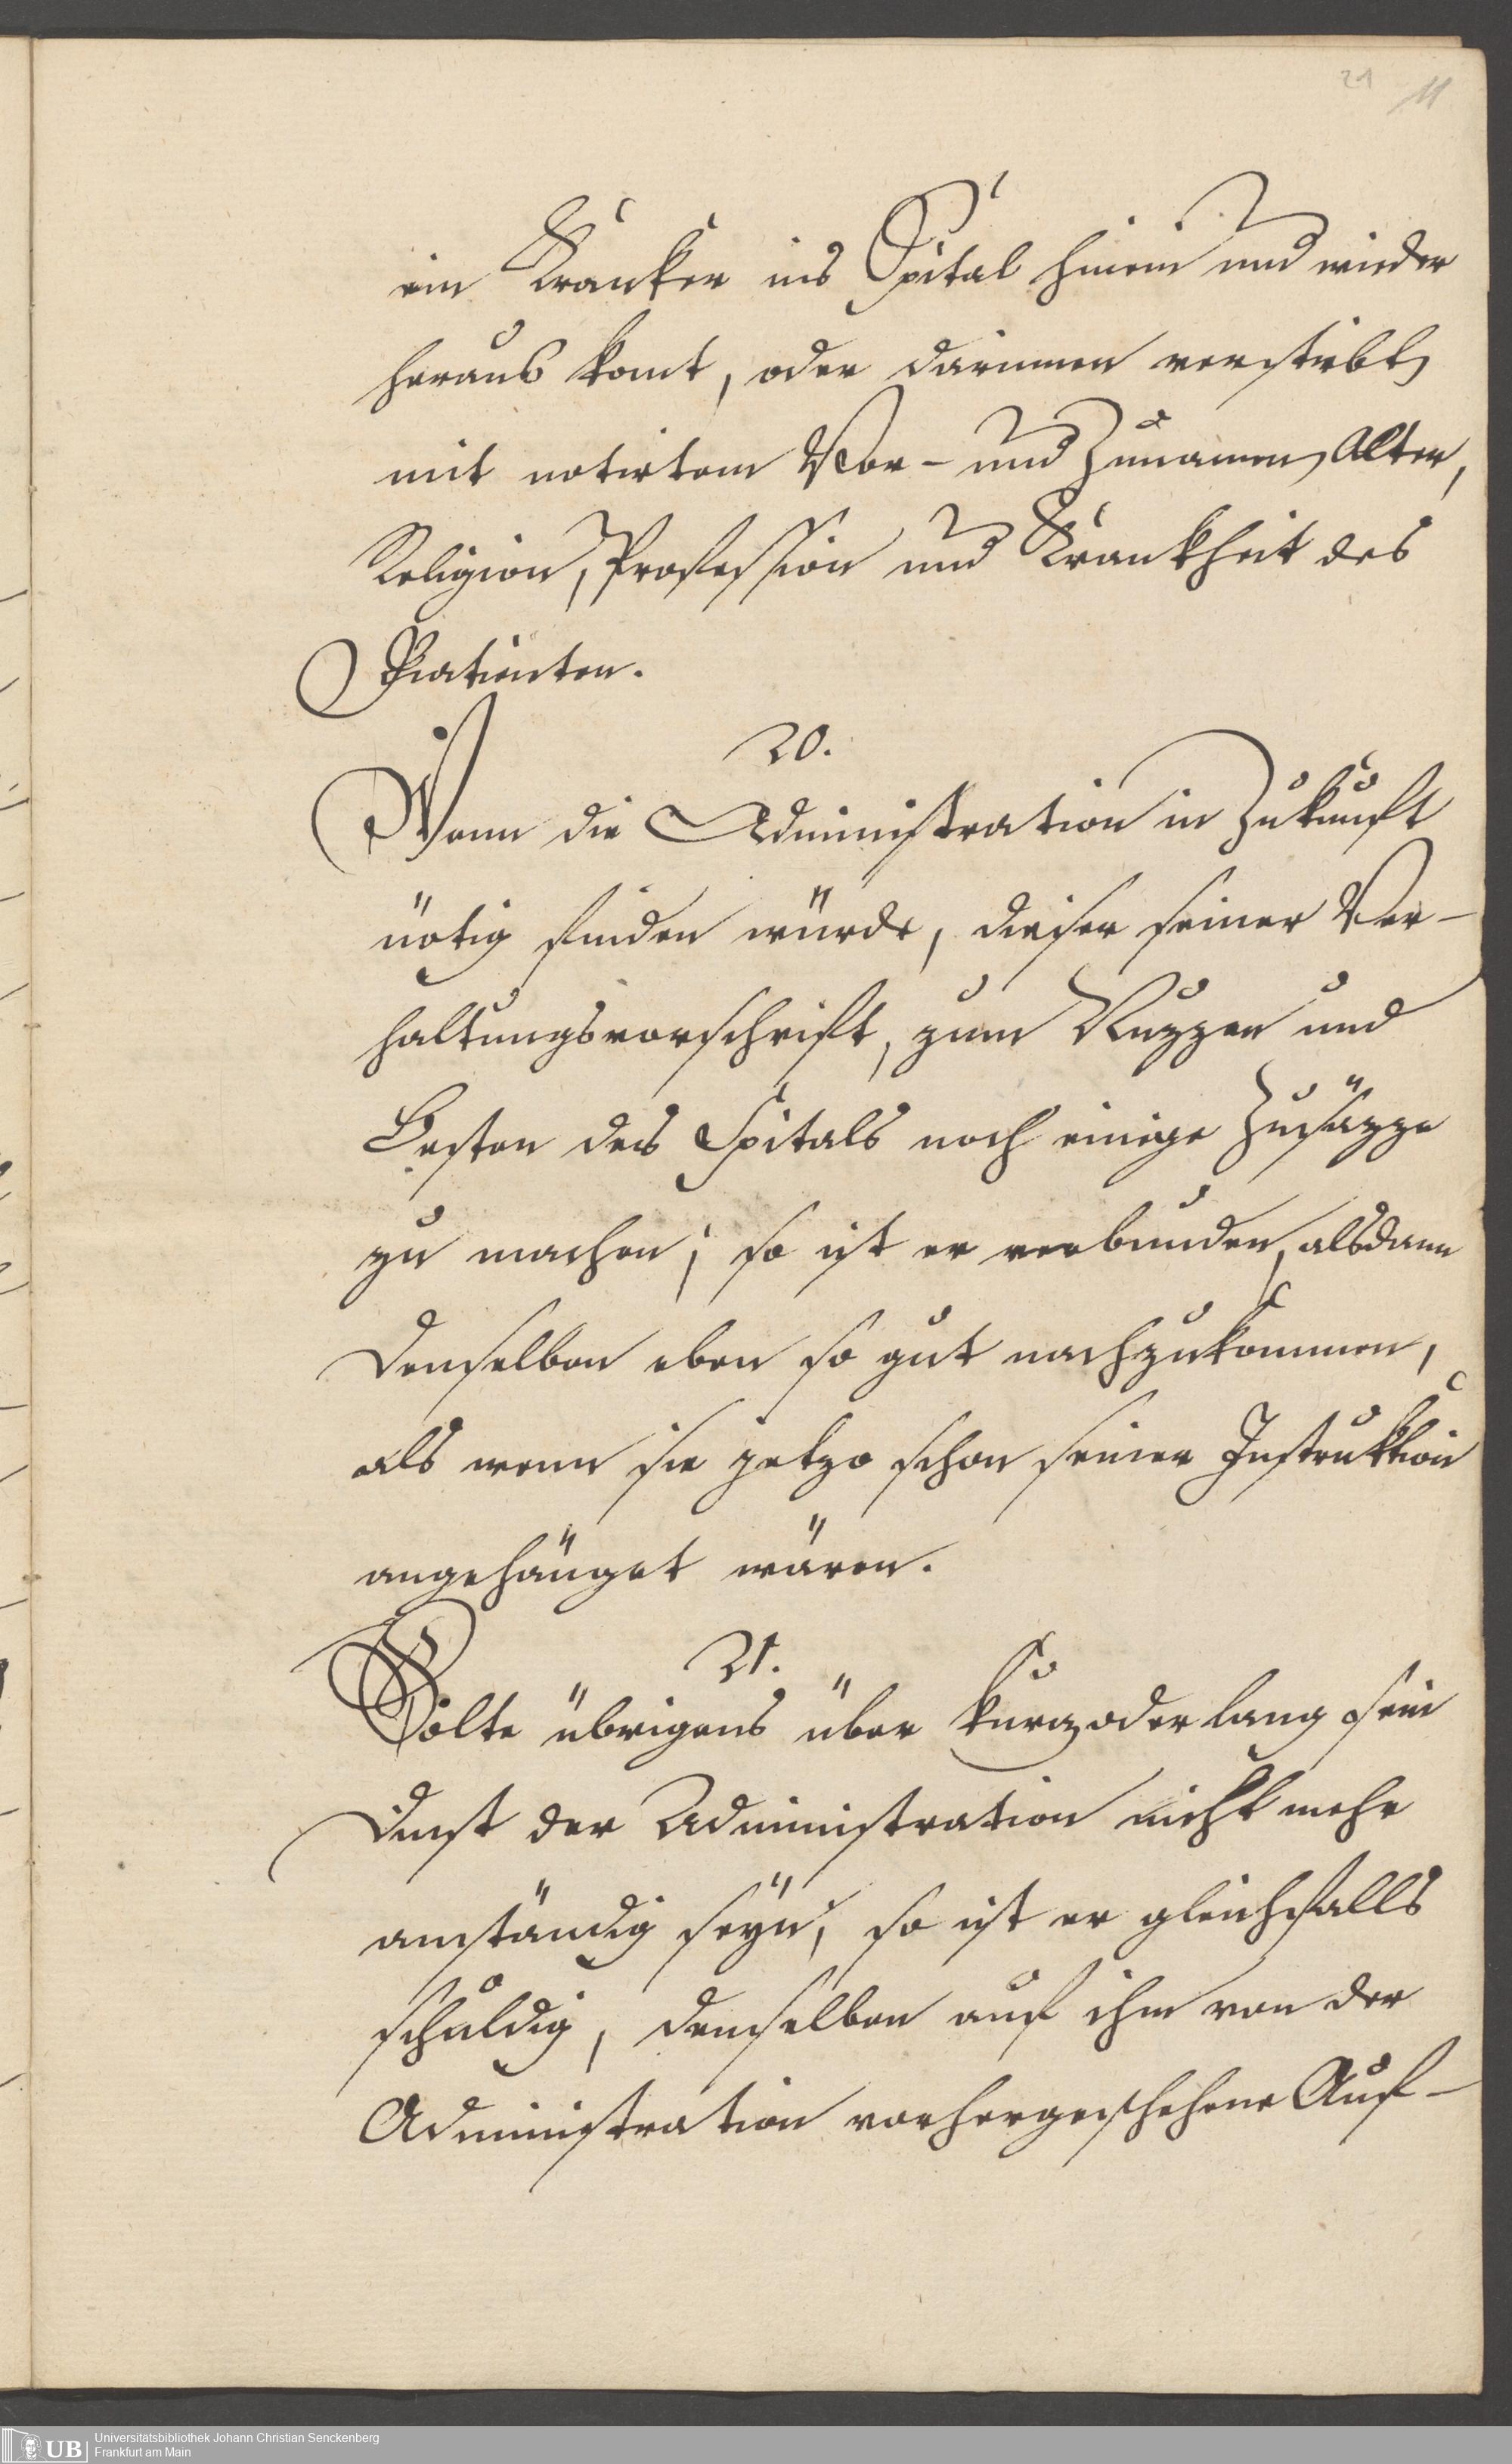 21 11
ein Kranker ins Spital hinein und wieder
heraus komt, oder darinnen verstirbt,
mit notirtem Vor- und Zunamen, Alter,
Religion, Profession und Krankheit des
Patienten.
20.
Wenn die Administration in Zukunft
nötig finden würde, dieser seiner Ver-
haltungsvorschrift, zum Nuzzen und
Besten des Spitals noch einige Zusäzze
zu machen; so ist er verbunden, alsdann
denselben eben so gut nachzukommen,
als wenn sie jetzo schon seiner Instruktion
angehänget wären.
21.
Solte übrigens über kurz oder lang sein
Dinst der Administration nicht mehr
anständig seyn, so ist er gleichfalls
schuldig, denselben auf ihm von der
Administration vorhergeschehene Auf-
UB Universitätsbibliothek Johann Christian Senckenberg
Frankfurt am Main